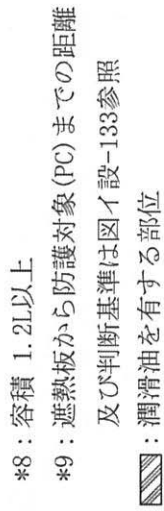 *8：容積 1.2L以上
*9：遮熱板から防護対象(PC)までの距離
及び判断基準は図イ設-133参照
：潤滑油を有する部位